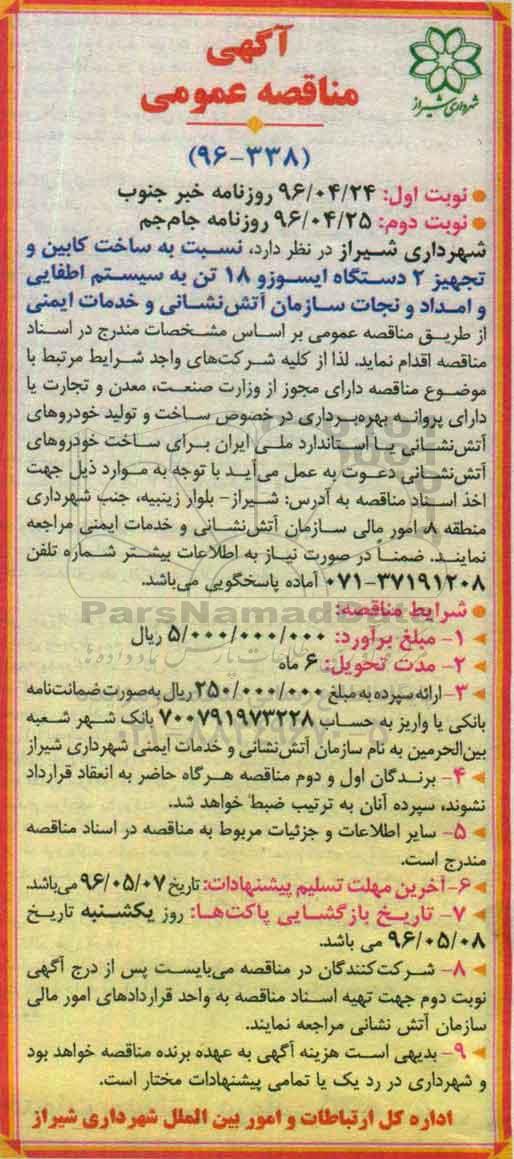 شهرداری شیراز
آگهی
مناقصه عمومی
(۹۶-۳۳۸)
نوبت اول: ۹۶/۰۴/۲۴ روزنامه خبر جنوب
نوبت دوم: ۹۶/۰۴/۲۵ روزنامه جام‌جم
شهرداری شیراز در نظر دارد، نسبت به ساخت کابین و
تجهیز ۲ دستگاه ایسوزو ۱۸ تن به سیستم اطفایی
و امداد و نجات سازمان آتش‌نشانی و خدمات ایمنی
از طریق مناقصه عمومی بر اساس مشخصات مندرج در اسناد
مناقصه اقدام نماید. لذا از کلیه شرکت‌های واجد شرایط مرتبط با
موضوع مناقصه دارای مجوز از وزارت صنعت، معدن و تجارت یا
دارای پروانه بهره‌برداری در خصوص ساخت و تولید خودروهای
آتش‌نشانی یا استاندارد ملی ایران برای ساخت خودروهای
آتش‌نشانی دعوت به عمل می‌آید با توجه به موارد ذیل جهت
اخذ اسناد مناقصه به آدرس: شیراز- بلوار زینبیه، جنب شهرداری
منطقه ۸، امور مالی سازمان آتش‌نشانی و خدمات ایمنی مراجعه
نمایند. ضمناً در صورت نیاز به اطلاعات بیشتر شماره تلفن
۰۷۱-۳۷۱۹۱۲۰۸ آماده پاسخگویی می‌باشد.
ParsNamadData
شرایط مناقصه:
۱- مبلغ برآورد: ۵/۰۰۰/۰۰۰/۰۰۰ ریال
۲- مدت تحویل: ۶ ماه
۳- ارائه سپرده به مبلغ ۲۵۰/۰۰۰/۰۰۰ ریال به‌صورت ضمانت‌نامه
بانکی یا واریز به حساب ۷۰۰۷۹۱۹۷۳۲۲۸ بانک شهر شعبه
بین‌الحرمین به نام سازمان آتش‌نشانی و خدمات ایمنی شهرداری شیراز
۴- برندگان اول و دوم مناقصه هرگاه حاضر به انعقاد قرارداد
نشوند، سپرده آنان به ترتیب ضبط خواهد شد.
۵- سایر اطلاعات و جزئیات مربوط به مناقصه در اسناد مناقصه
مندرج است.
۶- آخرین مهلت تسلیم پیشنهادات: تاریخ ۹۶/۰۵/۰۷ می‌باشد.
۷- تاریخ بازگشایی پاکت‌ها: روز یکشنبه تاریخ
۹۶/۰۵/۰۸ می باشد.
۸- شرکت‌کنندگان در مناقصه می‌بایست پس از درج آگهی
نوبت دوم جهت تهیه اسناد مناقصه به واحد قراردادهای امور مالی
سازمان آتش نشانی مراجعه نمایند.
۹- بدیهی است هزینه آگهی به عهده برنده مناقصه خواهد بود
و شهرداری در رد یک یا تمامی پیشنهادات مختار است.
اداره کل ارتباطات و امور بین الملل شهرداری شیراز